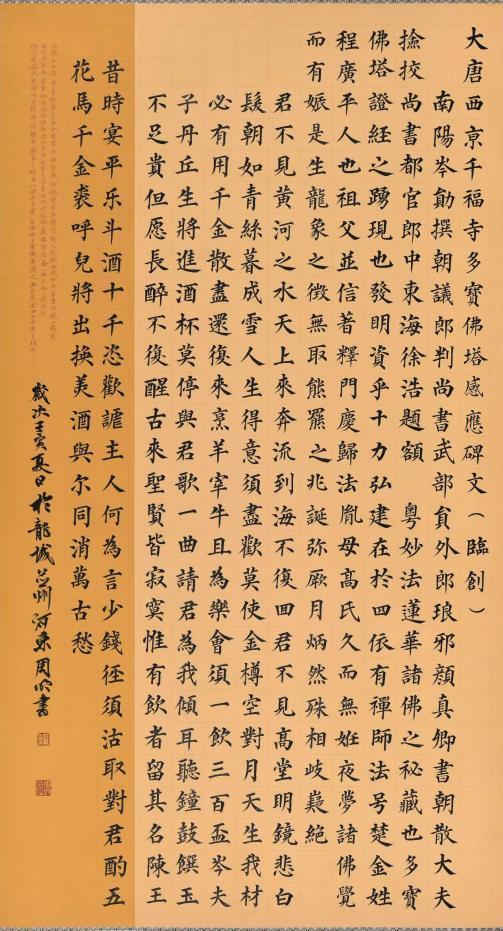 大唐西京千福寺多寶佛塔感應碑文（臨創）
南陽岑勛撰朝議郎判尚書武部負外郎琅邪顏真卿書朝散大夫
撿挍尚書都官郎中東海徐浩題額 粵妙法蓮華諸佛之秘藏也多寶
佛塔證經之踴現也發明資乎十力弘建在於四依有禪師法号楚金姓
程廣平人也祖父並信著釋門慶歸法胤母髙氏久而無姙夜夢諸佛覺
而有娠是生龍象之徵無取熊羆之兆誕弥厥月炳然殊相岐嶷絕
君不見黃河之水天上來奔流到海不復回君不見髙堂明鏡悲白
髮朝如青絲暮成雪人生得意須盡歡莫使金樽空對月天生我材
必有用千金散盡還復來烹羊宰牛且為樂會須一飲三百盃岑夫
子丹丘生將進酒杯莫停與君歌一曲請君為我傾耳聽鐘鼓饌玉
不足貴但愿長醉不復醒古來聖賢皆寂寞惟有飲者留其名陳王
昔時宴平乐斗酒十千恣歡謔主人何為言少錢径須沽取對君酌五
花馬千金裘呼兒將出換美酒與尔同消萬古愁
歲次壬寅夏日於龍城州河東周書